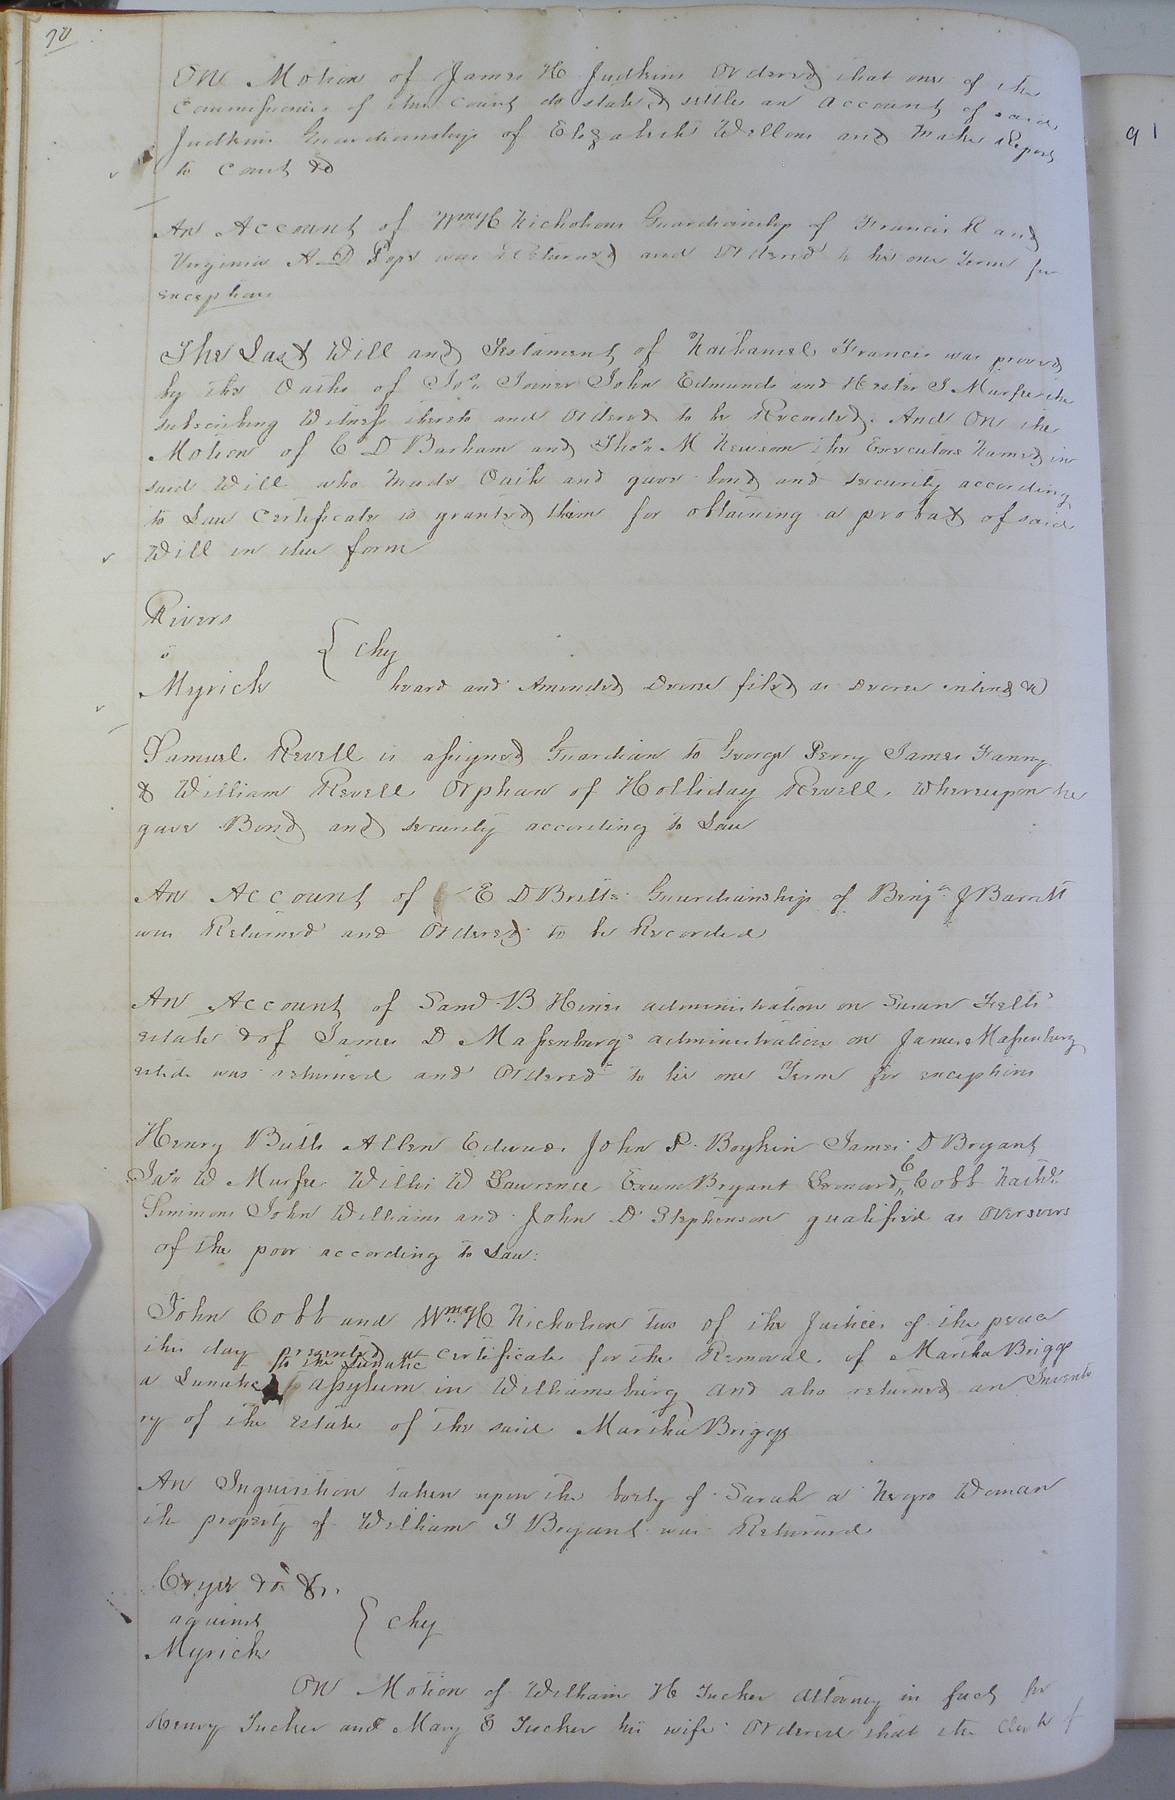 90
91
On Motion of James H Judkins Ordered that one of the
Commissioners of this court do state & settle an account of said
Judkins Guardianship of Elizabeth Wellons and make Report
to Court &c
An Account of Wm H Nicholsons Guardianship of Francis R and
Virginia A D Pope was Returned and Ordered to lie one Term for
exceptions
The Last Will and Testament of Nathaniel Francis was proved
by the Oaths of Jno Joiner John Edmunds and Hester J Murfee the
subscribing Witness thereto and Ordered to be Recorded. And On the
Motion of C D Barham and Thos M Newsom the Executors Named in
said Will who made Oath and gave bond and security according
to Law Certificate is granted them for obtaining a probat of said
Will in due form
Rivers
v
Myrick
Chy
heard and Amended Decree filed as Decree entered &c
Samuel Revell is assigned Guardian to George Perry James Fanny
& William Revell Orphan of Holliday Revell. Whereupon he
gave Bond and security according to Law
An Account of E D Britts Guardianship of Benja J Barrett
was Returned and Ordered to be Recorded
An Account of Saml B Hines administration on Susan Felts'
estate & of James D Massenburgs administration on James Massenburg
estate was returned and Ordered to lie one Term for exceptions
Henry Butts Allen Edwards John P. Boykin James D Bryant
Jno W Murfee Willis W Lawrence Bryant C Cobb Nathl
Simmons John Williams and John D Stephenson qualified as Overseers
of the poor according to Law:
John Cobb and Wm H Nicholson two of the Justices of the peace
this day presented a certificate for the Removal of Martha Briggs
a Lunatic to the Lunatic assylum in Williamsburg and also returned an Invento
ry of the estate of the said Martha Briggs
An Inquisition taken upon the body of Sarah a Negro Woman
the property of William J Bryant was Returned
against
Myrick
Chy
On Motion of William H Tucker Attorney in fact for
Henry Tucker and Mary E Tucker his wife Ordered that the Clerk of